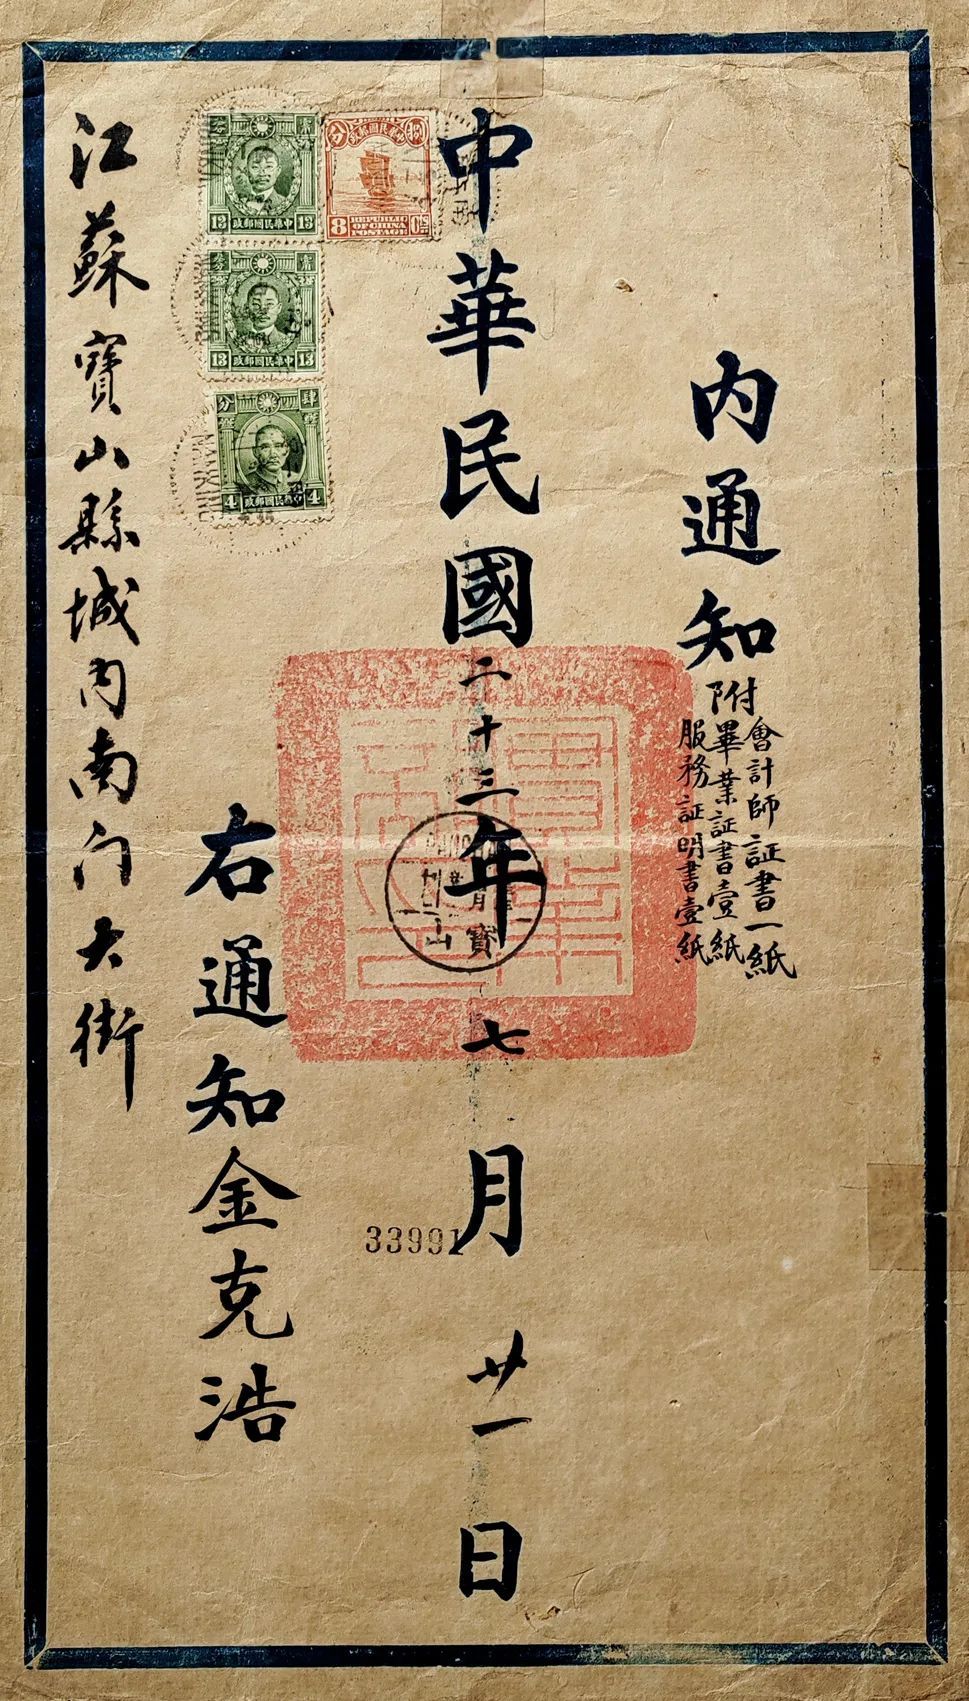 内通知
附
會計師証書一紙
畢業証書壹紙
服務証明書壹紙
中華民國二十三年七月廿一日
右通知金克浩
江蘇寶山縣城内南门大街
33991
中華民國郵政
13 13
中華民國郵政
13 13
中華民國郵政
4 4
中華民國郵政
8
REPUBLIC
OF CHINA
POSTAGE
寶山